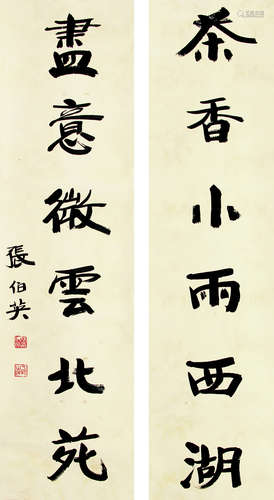 茶香小雨西湖
畫意微雲北苑
張伯英